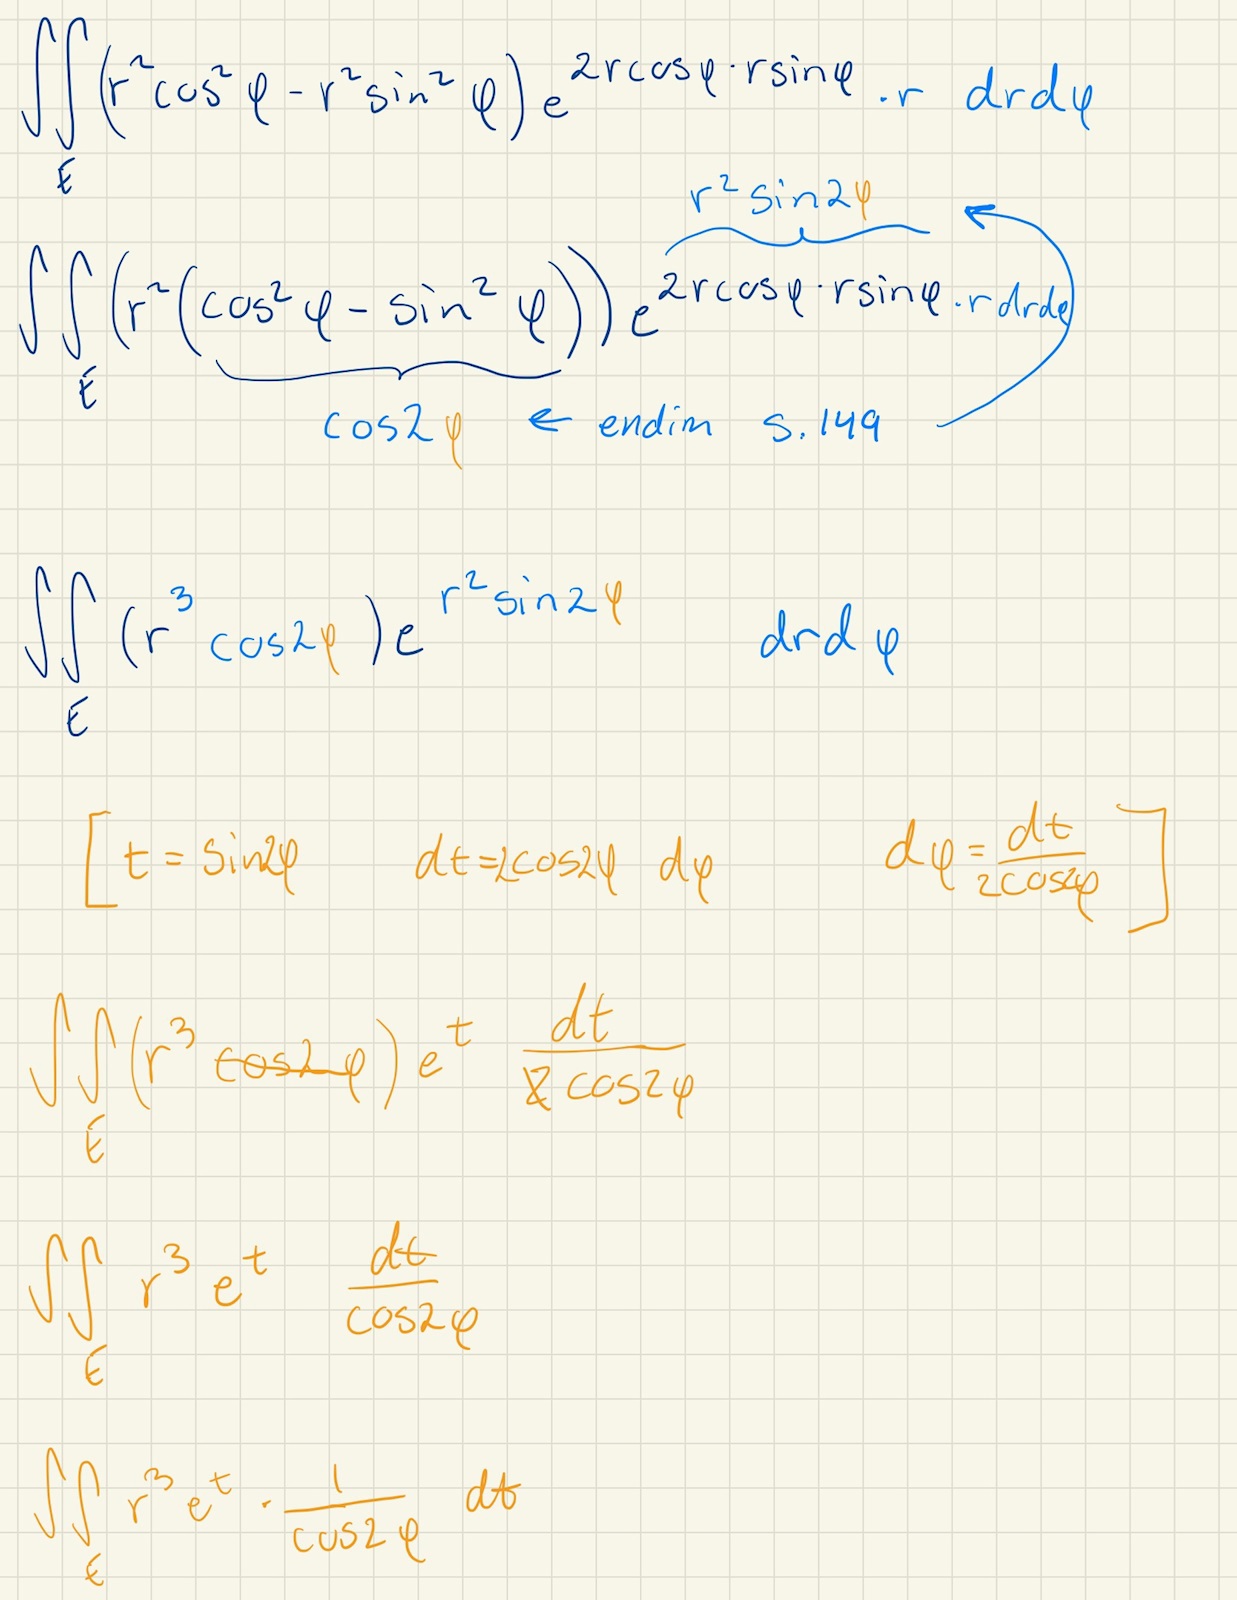 ∬_E (r² cos² φ − r² sin² φ) e^{2rcosφ · rsinφ} · r drdφ
r² sin2φ
∬_E (r² (cos² φ − sin² φ)) e^{2rcosφ · rsinφ} · r drdφ
cos2φ ← endim s. 149
∬_E (r³ cos2φ) e^{r² sin2φ} drdφ
[ t = sin2φ dt = 2cos2φ dφ dφ = dt / 2cos2φ ]
∬_E (r³ cos2φ) e^t dt / 2 cos2φ
∬_E r³ e^t dt / cos2φ
∬_E r³ e^t · 1 / cos2φ dt